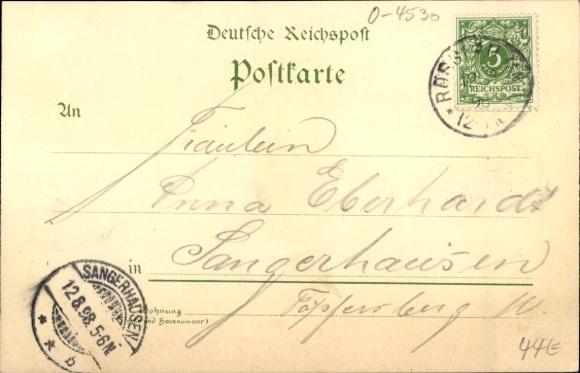 O-4530
Deutsche Reichspost
Postkarte
5
REICHSPOST
12
An
Fräulein
Anna Eberhardt
in Sangerhausen
Wohnung
(und Hausnummer)
Töpfersberg
SANGERHAUSEN
12.8.98.5-6N
* * b
44E